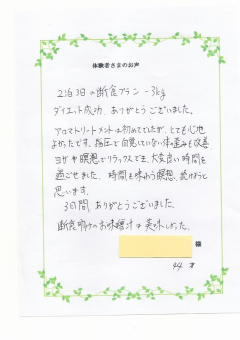 体験者さまのお声
2泊3日の断食プラン -3kg
ダイエット成功、ありがとうございました。
アロマトリートメントは初めてでしたが、とても心地
よかったです。指圧で自覚していない体の歪みも改善、
ヨガや瞑想でリラックスでき、大変良い時間を
過ごせました。時間を味わう瞑想、続けようと
思います。
3日間、ありがとうございました。
断食明けのお味噌汁は美味しかった。
様
44 才